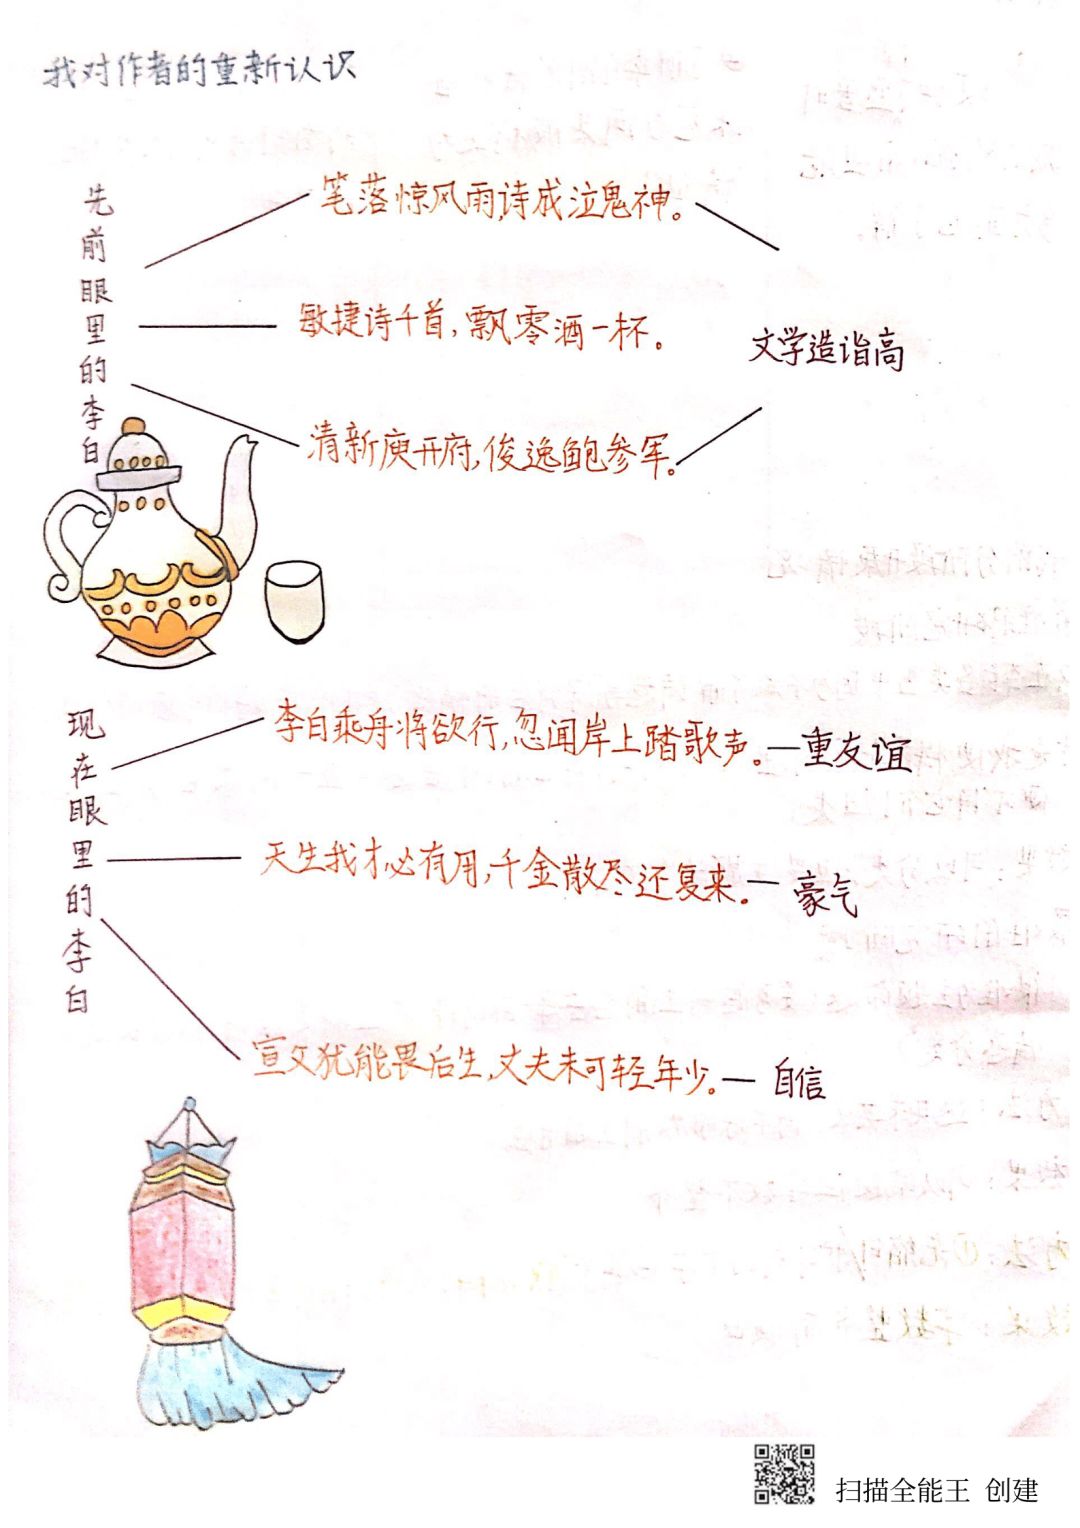 我对作者的重新认识
先前眼里的李白
笔落惊风雨,诗成泣鬼神。
敏捷诗千首,飘零酒一杯。
清新庾开府,俊逸鲍参军。
文学造诣高
现在眼里的李白
李白乘舟将欲行,忽闻岸上踏歌声。—重友谊
天生我才必有用,千金散尽还复来。—豪气
宣父犹能畏后生,丈夫未可轻年少。—自信
扫描全能王 创建